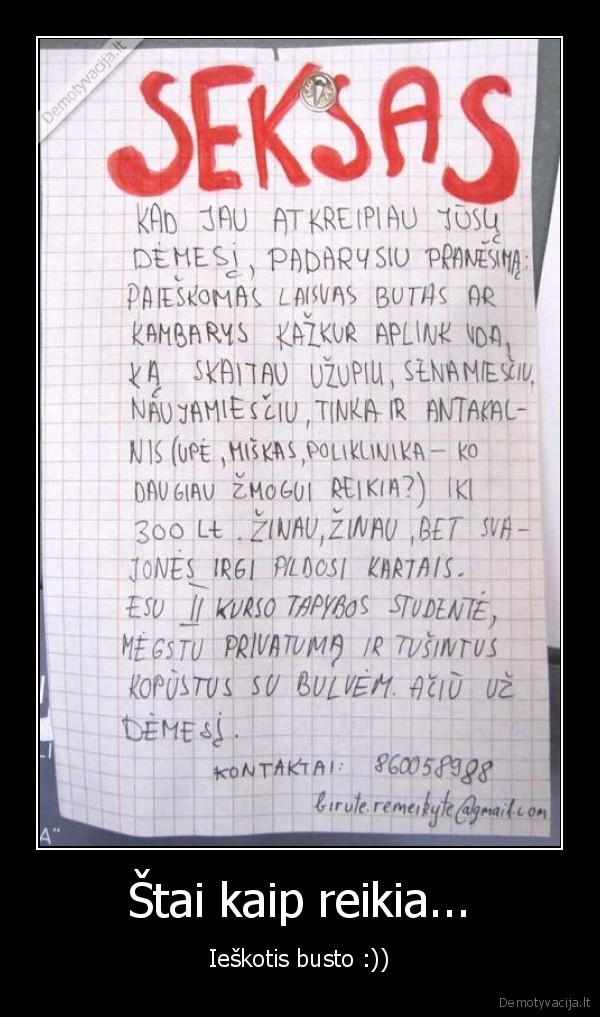 Demotyvacija.lt
SEKSAS
KAD JAU ATKREIPIAU JŪSŲ
DĖMESĮ, PADARYSIU PRANEŠIMĄ:
PAIEŠKOMAS LAISVAS BUTAS AR
KAMBARYS KAŽKUR APLINK VDA,
KĄ SKAITAU UŽUPIU, SENAMIESČIU,
NAUJAMIESČIU, TINKA IR ANTAKAL-
NIS (UPĖ, MIŠKAS, POLIKLINIKA – KO
DAUGIAU ŽMOGUI REIKIA?) IKI
300 Lt. ŽINAU, ŽINAU, BET SVA-
JONĖS IRGI PILDOSI KARTAIS.
ESU II KURSO TAPYBOS STUDENTĖ,
MĖGSTU PRIVATUMĄ IR TUŠINTUS
KOPŪSTUS SU BULVĖM. AČIŪ UŽ
DĖMESĮ.
KONTAKTAI: 860058988
birute.remeikyte@gmail.com
A"
Štai kaip reikia...
Ieškotis busto :))
Demotyvacija.lt